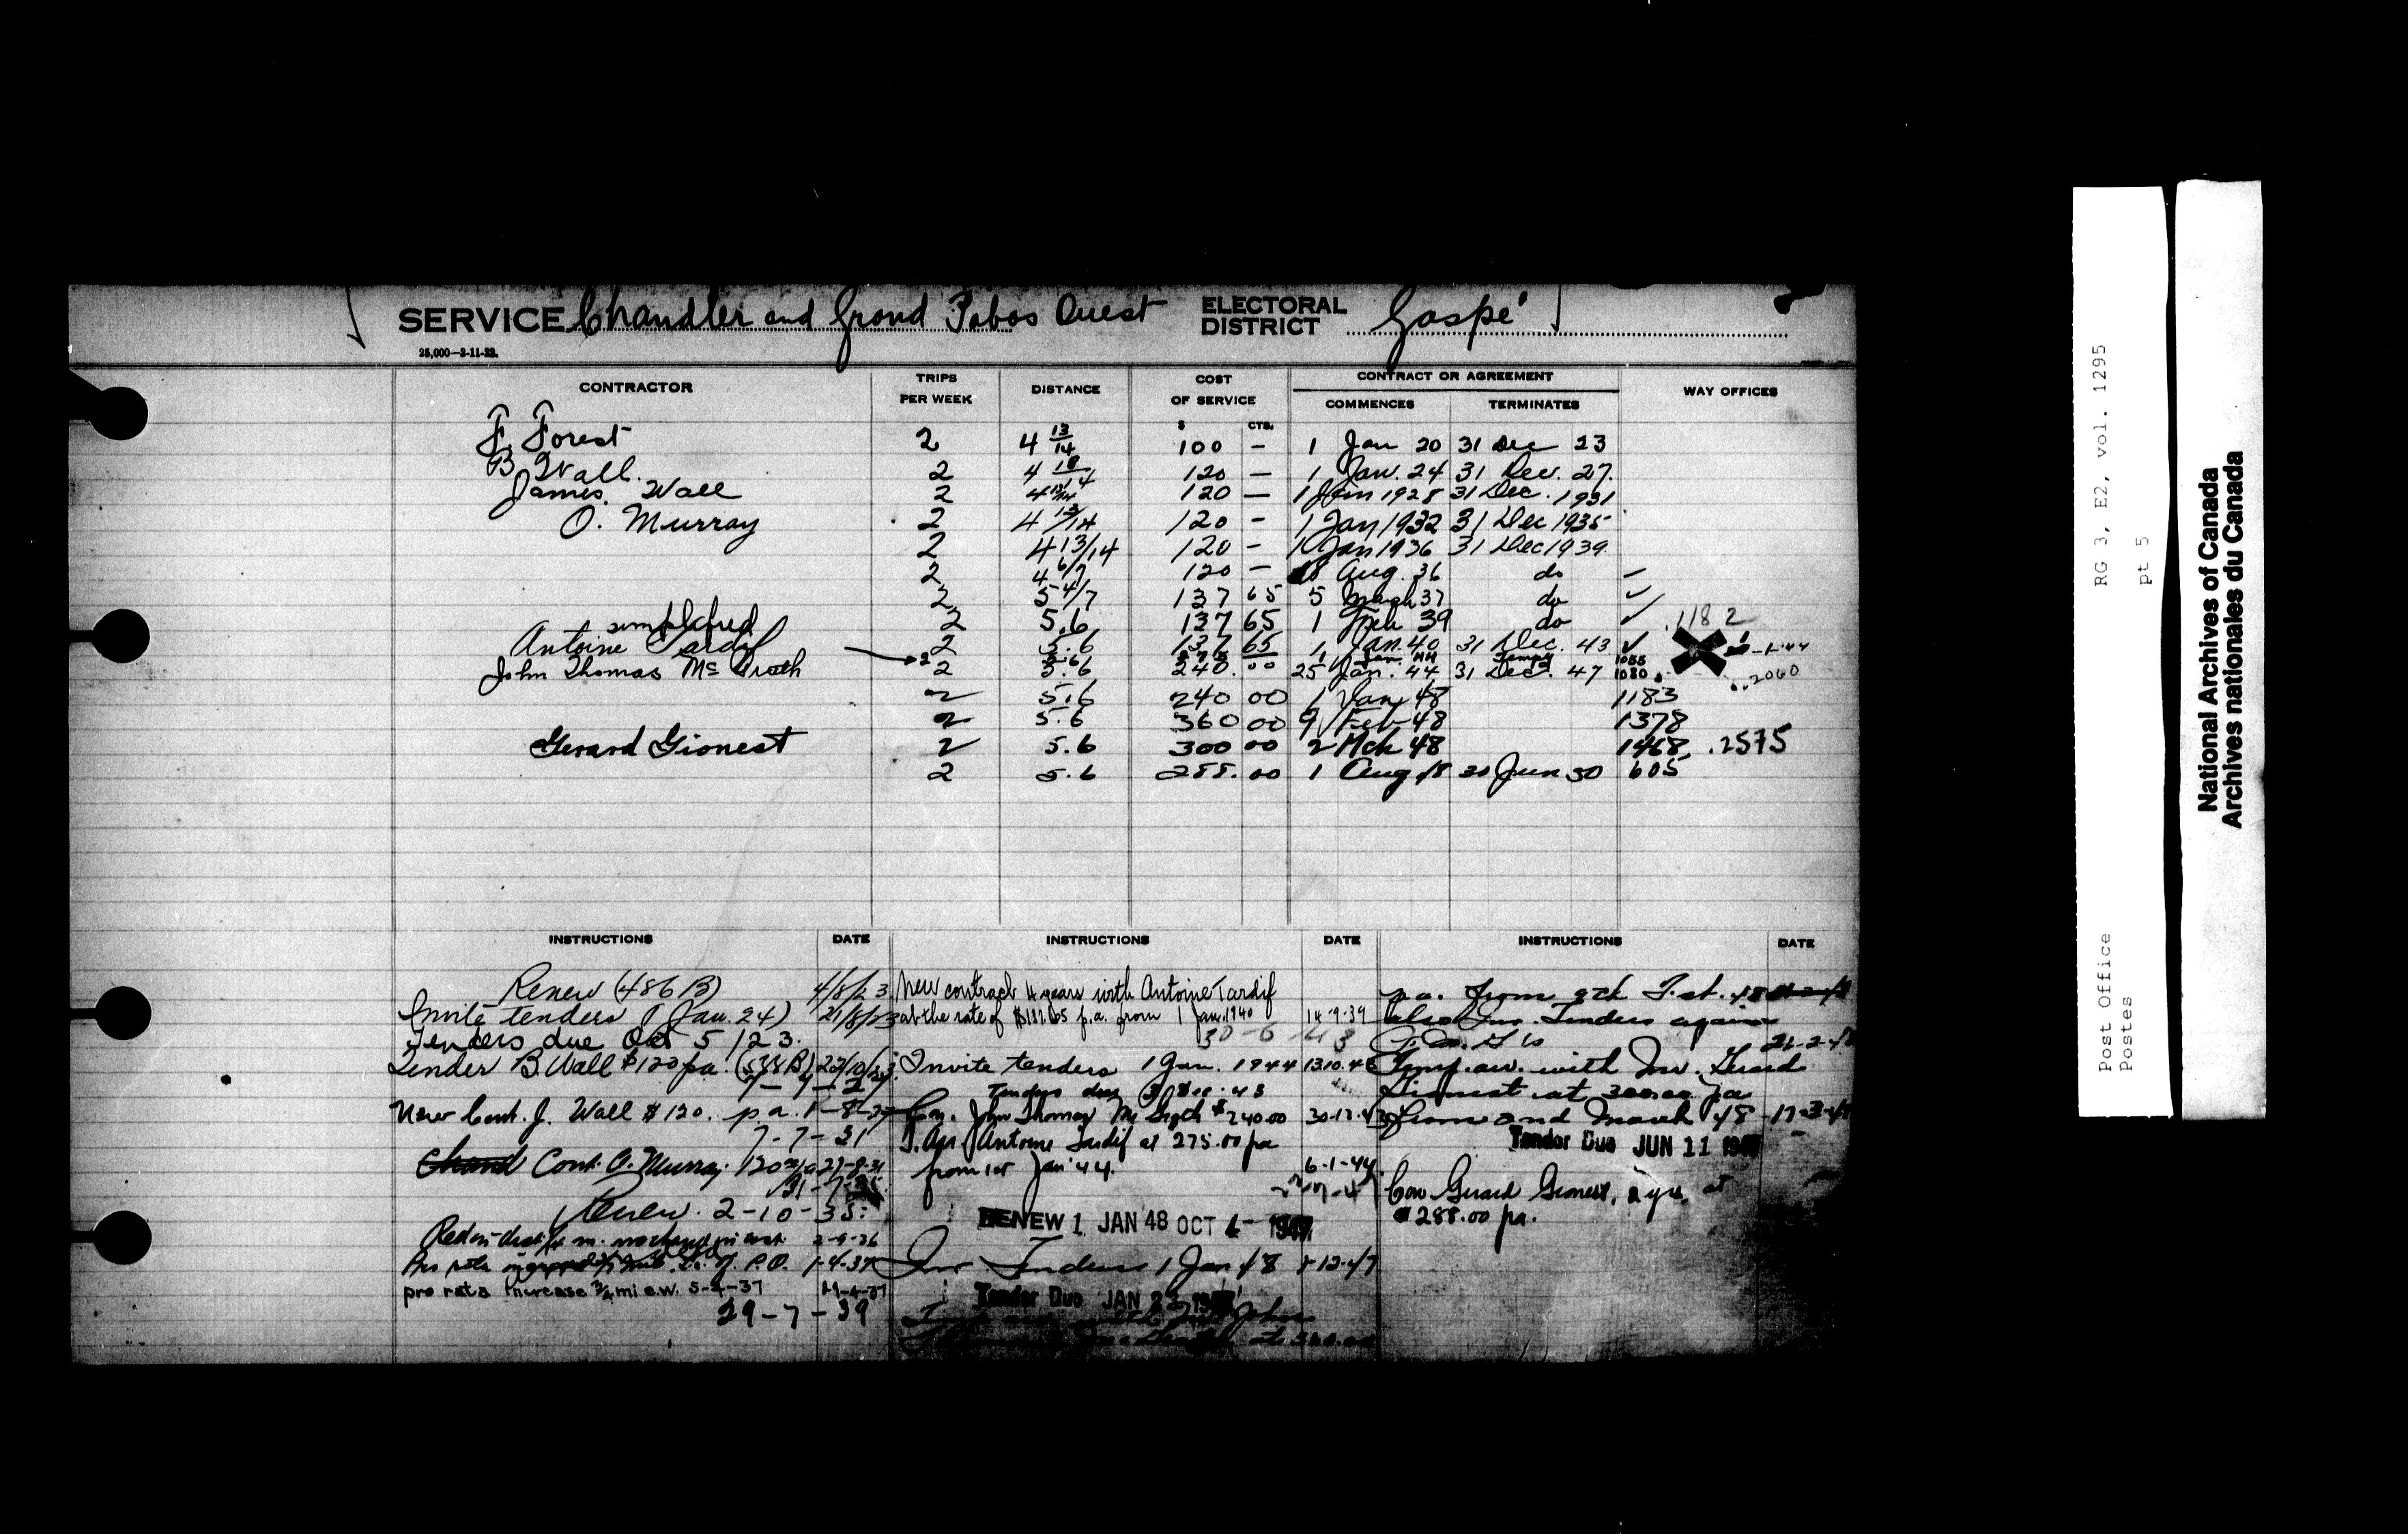 SERVICE Chandler and Grand Pabos Ouest ELECTORAL DISTRICT Gaspé
25,000—2-11-23.
CONTRACTOR TRIPS PER WEEK DISTANCE COST OF SERVICE CONTRACT OR AGREEMENT WAY OFFICES
COMMENCES TERMINATES
$ CTS.
F. Forest 2 4 13/14 100 — 1 Jan 20 31 Dec 23
B Wall. 2 4 120 — 1 Jan. 24 31 Dec. 27.
James Wall 2 4 13/14 120 — 1 Jan 1928 31 Dec. 1931
O. Murray 2 4 13/14 120 - 1 Jan 1932 31 Dec 1935
2 4 13/14 120 - 1 Jan 1936 31 Dec 1939.
2 4 6/7 120 — Aug. 36 do
2 5 4/7 137 65 5 March 37 do ✓
2 5.6 137 65 1 Feb 39 do ✓ .1182
Antoine Tardif 2 5.6 137 65 1 Jan. 40 31 Dec. 43 ✓
John Thomas Mc Grath 2 5.6 240. 00 25 Jan. 44 31 Dec. 47 1080. .2060
2 5.6 240 00 1 Jan 48 1183
2 5.6 360 00 9 Feb 48 1378
Gerard Gionest 2 5.6 300 00 2 Mch 48 1468. .2575
2 5.6 288. 00 1 Aug 48 30 Jun 50 605
INSTRUCTIONS DATE INSTRUCTIONS DATE INSTRUCTIONS DATE
Renew (486 B) 4/8/23
Invite tenders (1 Jan. 24) 21/8/23
Tenders due Oct 5/23.
Tender B. Wall $120 pa. (538 B)
New Cont. J. Wall $120. p.a.
7-7-31
Cont. O. Murray 120 27-8-31
Renew. 2-10-35
2-9-36
1-4-37
pro rata increase 3/4 mi e.w. 5-3-37 29-4-37
29-7-39
New contract 4 years with Antoine Tardif
at the rate of $137.65 p.a. from 1 Jan. 1940 14-9-39
30-6-43
Invite tenders 1 Jan. 1944
Tenders due Dec. 43
Con. John Thomas Mc Grath $240.00
Antoine Tardif at 275.00 pa
from 1st Jan 44. 6-1-44
RENEW 1 JAN 48 OCT
Inv Tenders 1 Jan 48
Tender Due JAN 23
p.a. from 9th
also Inv. Tenders again
with Mr. Gerard
Gionest at 300.00 pa
from 2nd March 48
Tender Due JUN 11
Con Gerard Gionest, 2 yrs. at
288.00 pa.
Post Office RG 3, E2, vol. 1295
Postes pt 5
National Archives of Canada
Archives nationales du Canada